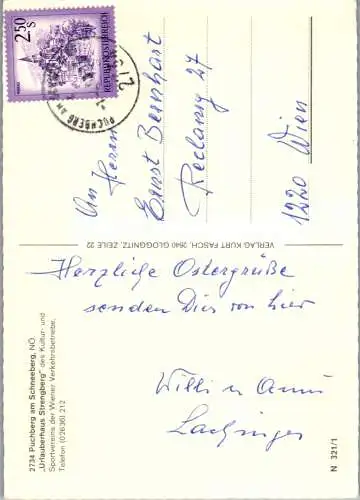 2,50
S
REPUBLIK ÖSTERREICH
PUCHBERG AM
An Herrn
Ernst Bernhart
Reclamg 27
1220 Wien
VERLAG KURT FASCH, 2640 GLOGGNITZ, ZEILE 22
Herzliche Ostergrüße
senden Dir von hier
Willi u Anni
2734 Puchberg am Schneeberg, NÖ.
„Urlauberhaus Strengberg" des Kultur- und
Sportvereins der Wiener Verkehrsbetriebe,
Telefon (02636) 212
N 321/1